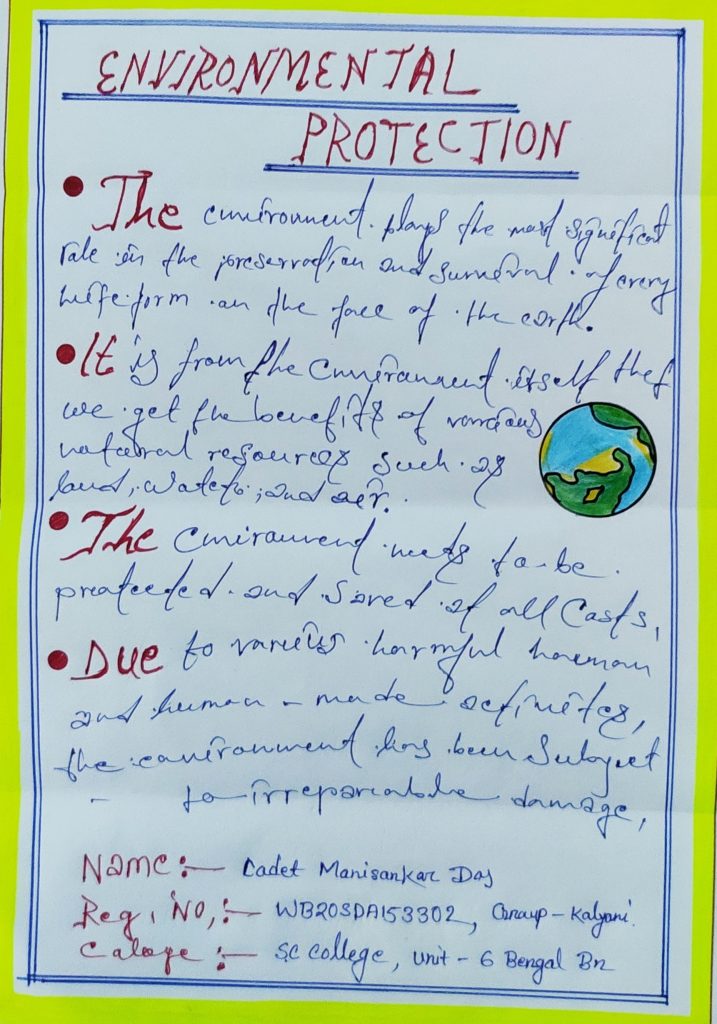 ENVIRONMENTAL
PROTECTION
• The environment plays the most significant
role in the preservation and survival of every
life form on the face of the earth.
• It is from the environment itself that
we get the benefits of various
natural resources such as
land, water, and air.
• The environment needs to be
protected and saved at all costs,
• Due to various harmful human
and human-made activities,
the environment has been subject
- to irreparable damage,
Name:- Cadet Manisankar Das
Reg, NO,:- WB20SDA153302, Group-Kalyani.
Caloge:- SC College, Unit-6 Bengal Bn